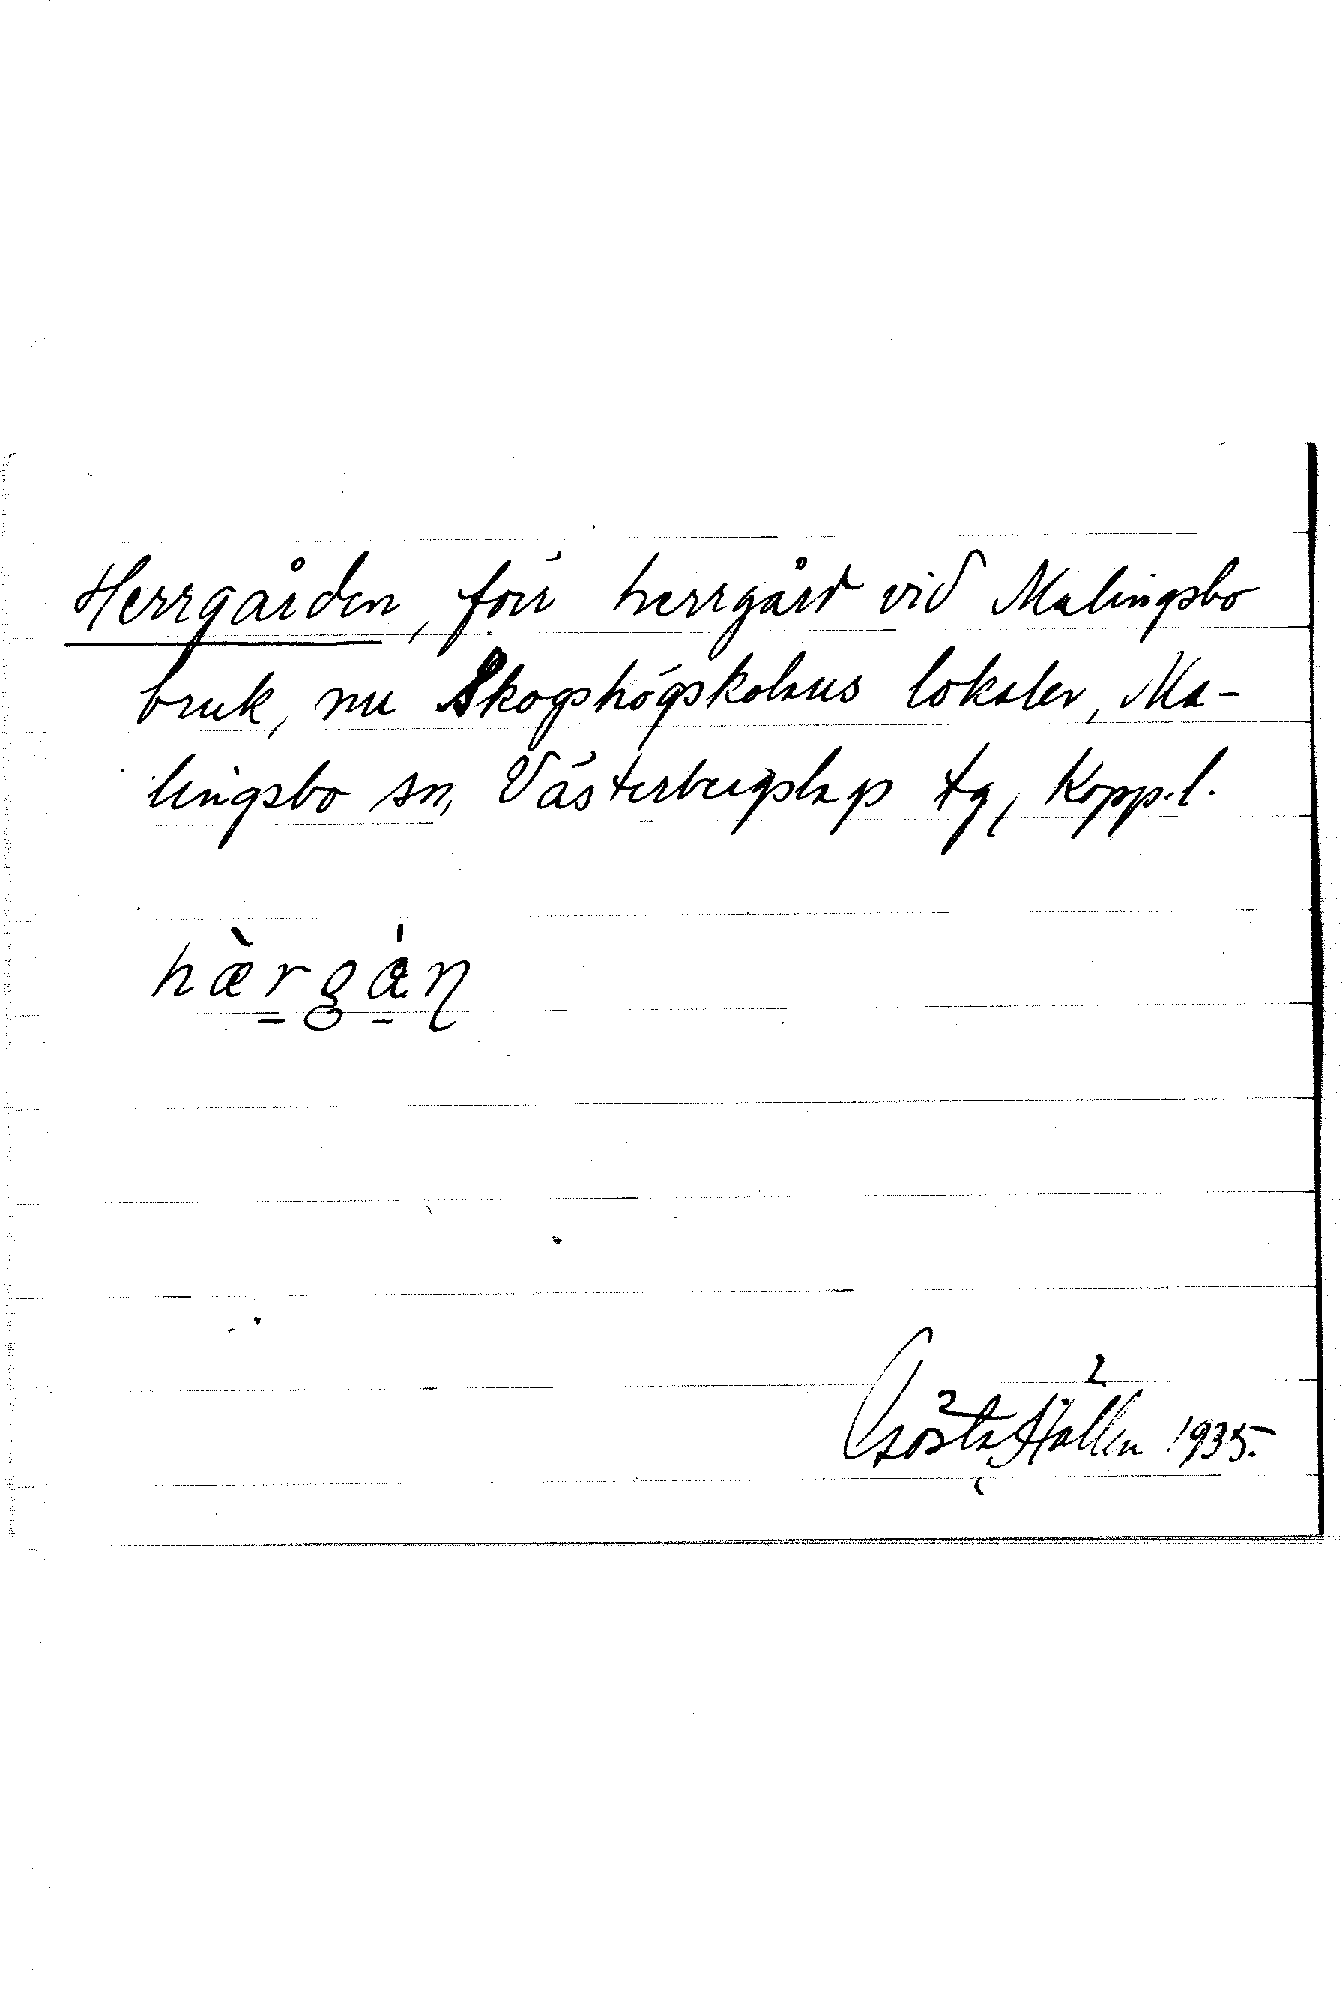 Herrgården, förr herrgård vid Malingsbo
bruk, nu Skogshögskolans lokaler, Ma-
lingsbo sn, Västerbergslags tg, Kopp.l.
hæ̀rgån
Gösta Hällen 1935.